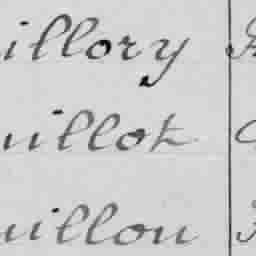 illory
uillot
uillou